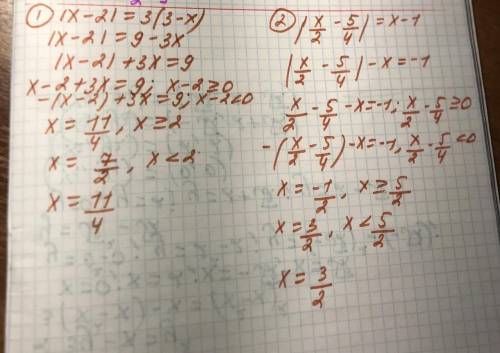 ① |x-2| = 3(3-x)
|x-2| = 9-3x
|x-2| + 3x = 9
x-2+3x=9; x-2≥0
-(x-2)+3x=9; x-2<0
x = 11/4, x≥2
x = 7/2, x<2
x = 11/4
② |x/2 - 5/4| = x-1
|x/2 - 5/4| - x = -1
x/2 - 5/4 - x = -1; x/2 - 5/4 ≥0
-(x/2 - 5/4) - x = -1, x/2 - 5/4 <0
x = -1/2, x ≥ 5/2
x = 3/2, x < 5/2
x = 3/2